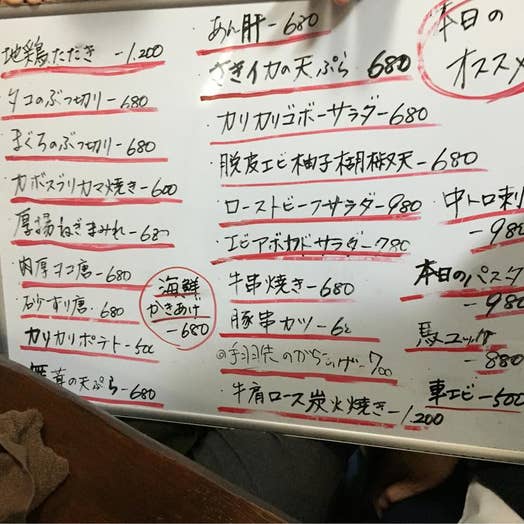 本日の
オススメ
地鶏たたき -1,200
タコのぶつ切り -680
まぐろのぶつ切り -680
カボスブリカマ焼き -600
厚揚ねぎまみれ -680
肉厚ココ唐 -680
砂ずり唐. 680
カリカリポテト -500
茸の天ぷら -680
海鮮
かきあげ
-680
・あん肝 - 680
・さきイカの天ぷら 680
・カリカリゴボーサラダー680
・脱皮エビ柚子胡椒天 - 680
・ローストビーフサラダー980
・エビアボカドサラダー780
・牛串焼き - 680
・豚串カツ -
◎手羽先のからあげ - 700
・牛肩ロース炭火焼き -1,200
中トロ刺
- 980
本日のパスタ
- 980
馬ユッケ
- 880
車エビ - 500